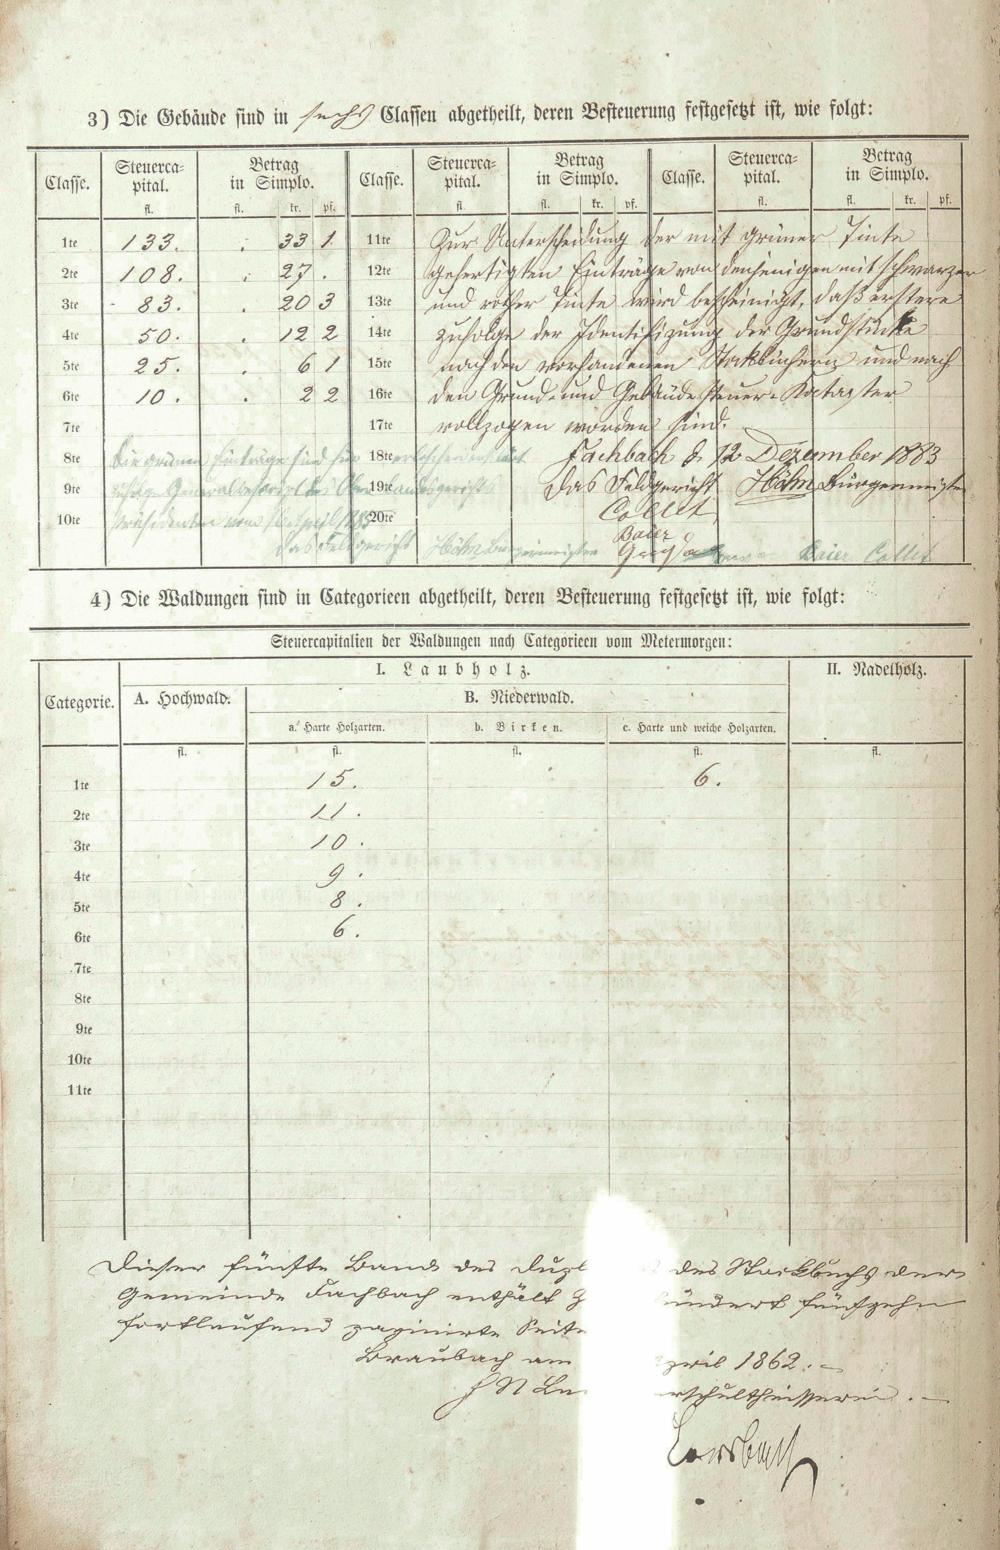 3) Die Gebäude sind in sechs Classen abgetheilt, deren Besteuerung festgesetzt ist, wie folgt:
Classe. Steuerca- pital. Betrag in Simplo. Classe. Steuerca- pital. Betrag in Simplo. Classe. Steuerca- pital. Betrag in Simplo.
fl. fl. kr. pf. fl fl. kr. pf. fl. fl. kr. pf.
1te 133. . 33 1 11te Zur Unterscheidung der mit grüner Tinte
2te 108. . 27 . 12te gefertigten Einträge von denjenigen mit schwarzer
3te 83. . 20 3 13te und rother Tinte wird bescheinigt, daß erstere
4te 50. . 12 2 14te zufolge der Identifizung der Grundstücke
5te 25. . 6 1 15te nach den vorhandenen Stockbüchern und nach
6te 10. . 2 2 16te den Grund- und Gebäudesteuer-Kataster
7te 17te vollzogen worden sind.
8te Die grünen Einträge sind für erloschen erklärt 18te Fachbach d. 12 Dezember 1883
9te zufolge Generalbescript des Oberlandesgerichts 19te Das Feldgericht Höhn Bürgermeister
10te Präsidenten vom April 1885 20te Collet
Baier
das Feldgericht Höhn Bürgermeister Baier Collet
4) Die Waldungen sind in Categorieen abgetheilt, deren Besteuerung festgesetzt ist, wie folgt:
Steuercapitalien der Waldungen nach Categorieen vom Metermorgen:
Categorie. I. Laubholz. II. Nadelholz.
A. Hochwald. B. Niederwald.
a. Harte Holzarten. b. Birken. c. Harte und weiche Holzarten.
fl. fl. fl. fl. fl.
1te 15. 6.
2te 11.
3te 10.
4te 9.
5te 8.
6te 6.
7te
8te
9te
10te
11te
Dieser fünfte Band des des Stockbuchs der
Gemeinde Fachbach enthält hundert fünfzehn
fortlaufend paginirte Seite
Braubach am April 1862.
H N